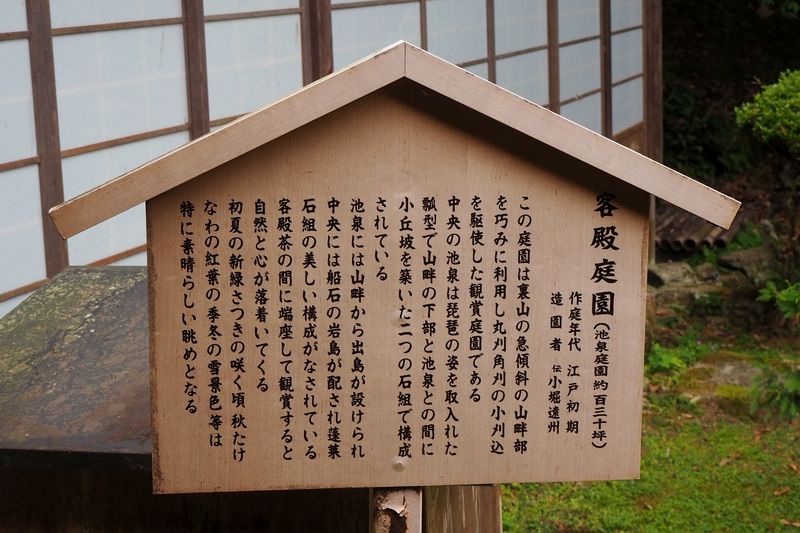 客殿庭園(池泉庭園約百三十坪)
作庭年代 江戸初期
造園者 伝小堀遠州
この庭園は裏山の急傾斜の山畔部
を巧みに利用し丸刈角刈の小刈込
を駆使した観賞庭園である
中央の池泉は琵琶の姿を取入れた
瓢型で山畔の下部と池泉との間に
小丘坡を築いた二つの石組で構成
されている
池泉には山畔から出島が設けられ
中央には船石の岩島が配され蓬莱
石組の美しい構成がなされている
客殿茶の間に端座して観賞すると
自然と心が落着いてくる
初夏の新緑さつきの咲く頃 秋たけ
なわの紅葉の季冬の雪景色等は
特に素晴らしい眺めとなる